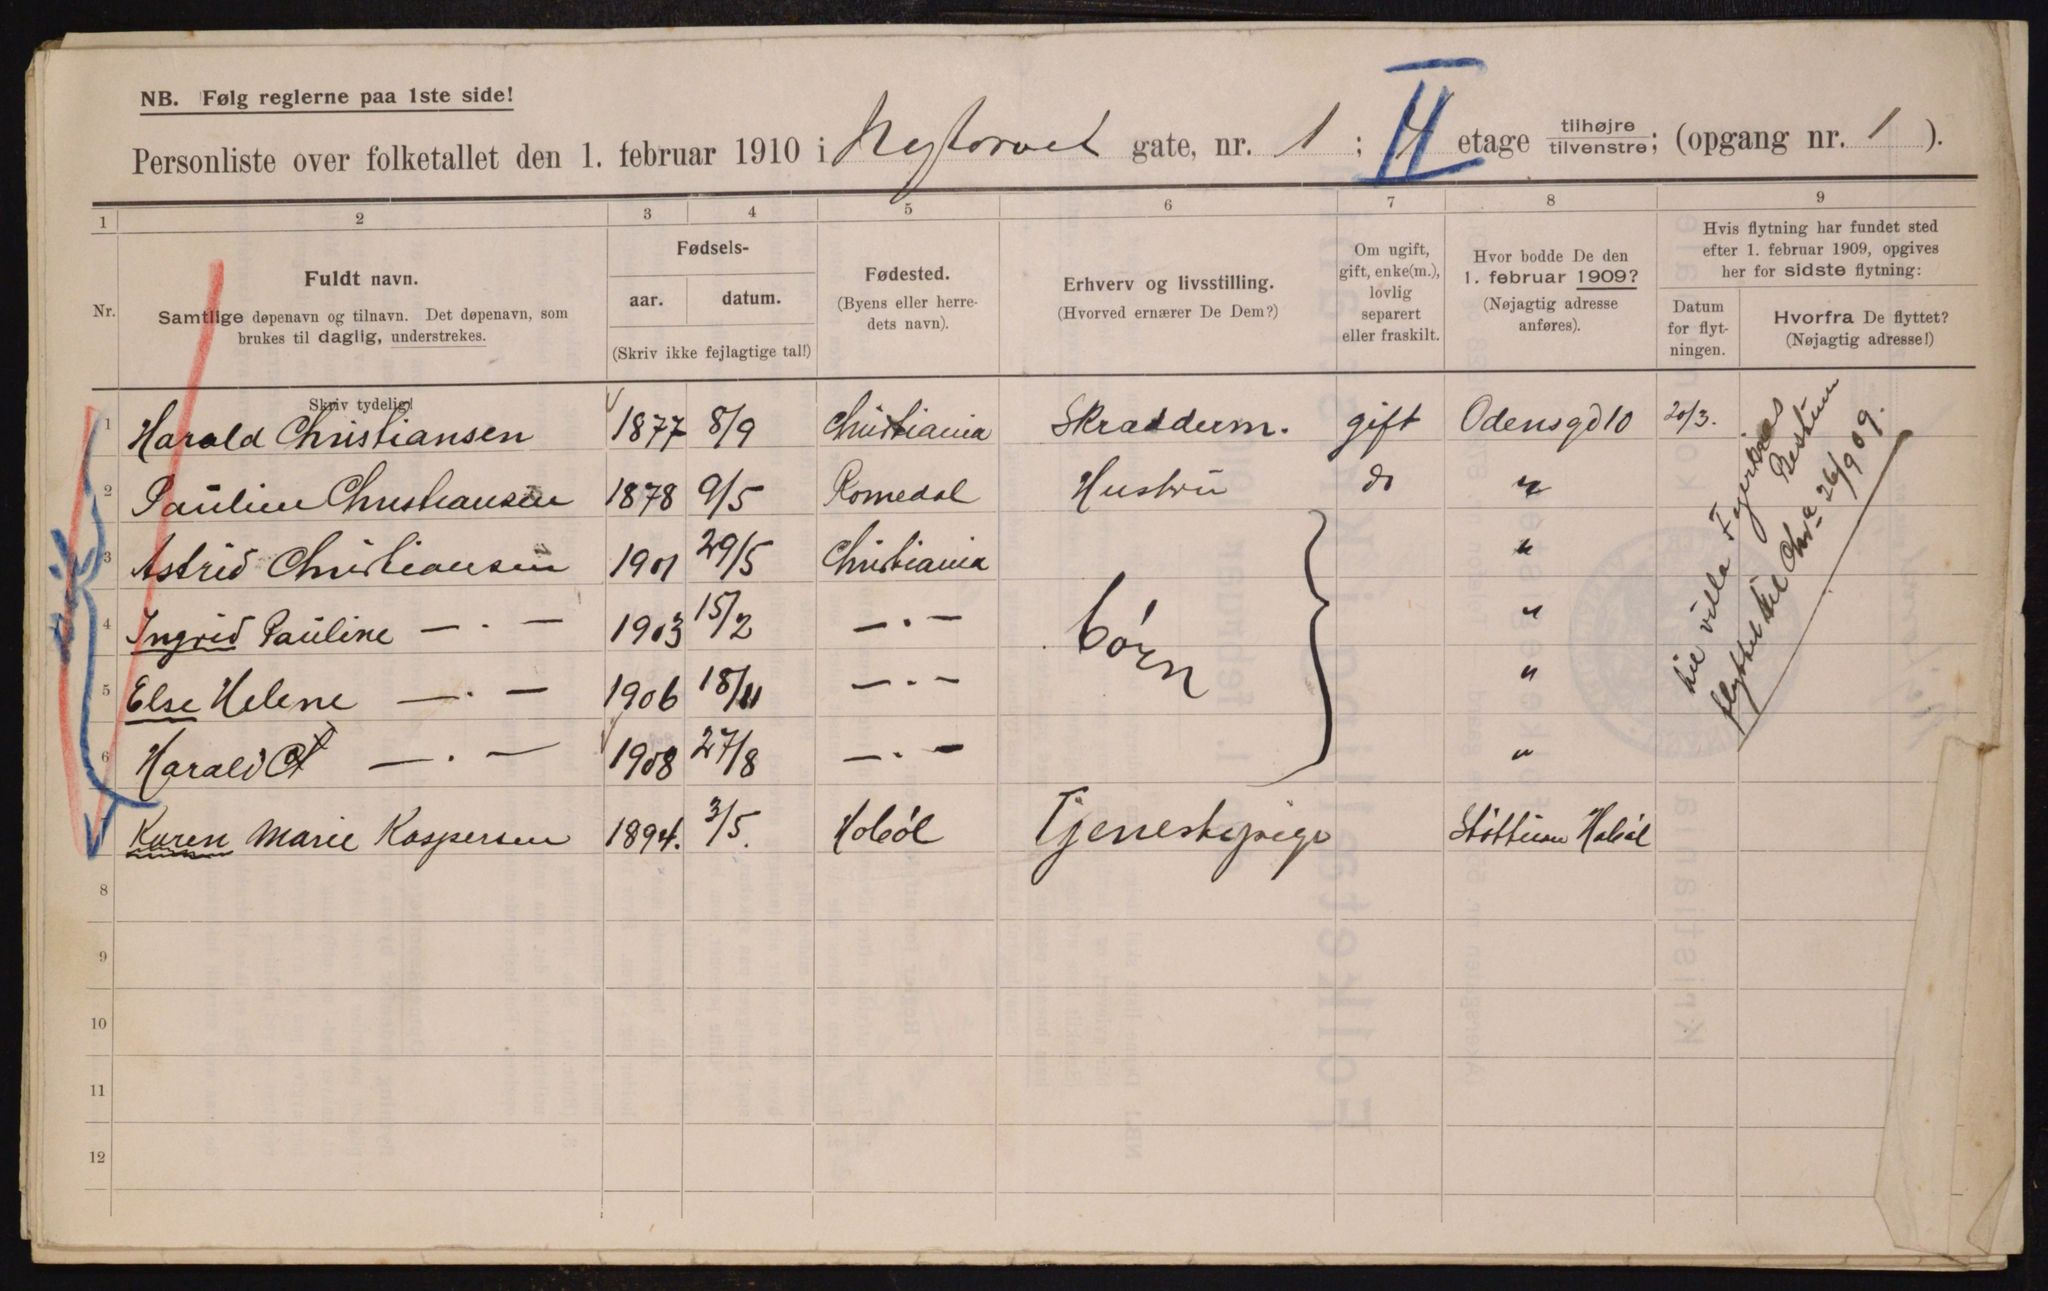 NB. Følg reglerne paa 1ste side!
Personliste over folketallet den 1. februar 1910 i Nytorvet gate, nr. 1 ; 4 II etage tilhøjre/tilvenstre; (opgang nr. 1 ).
1 2 3 4 5 6 7 8 9
Nr.
Fuldt navn.
Samtlige døpenavn og tilnavn. Det døpenavn, som
brukes til daglig, understrekes.
Skriv tydelig!
Fødsels-
aar. datum.
(Skriv ikke fejlagtige tal!)
Fødested.
(Byens eller herre-
dets navn).
Erhverv og livsstilling.
(Hvorved ernærer De Dem?)
Om ugift,
gift, enke(m.),
lovlig
separert
eller fraskilt.
Hvor bodde De den
1. februar 1909?
(Nøjagtig adresse
anføres).
Hvis flytning har fundet sted
efter 1. februar 1909, opgives
her for sidste flytning:
Datum
for flyt-
ningen.
Hvorfra De flyttet?
(Nøjagtig adresse!)
1 Harald Christiansen 1877 8/9 Christiania Skradderm. gift Odensgd 10 20/3.
2 Paüline Christiansen 1878 9/5 Romedal Hustrü do "
3 Astrid Christiansen 1901 29/5 Christiania "
4 Ingrid Paüline — . — 1903 15/2 — . — børn "
5 Else Helene — . — 1906 18/11 — . — "
6 Harald — . — 1908 27/8 — . — "
Karen Marie Kaspersen 1894. 3/5. Hobøl Tjenestepige Hobøl
til villa Bestum
flyttet til Chra 26/ 1909.
8
9
10
11
12